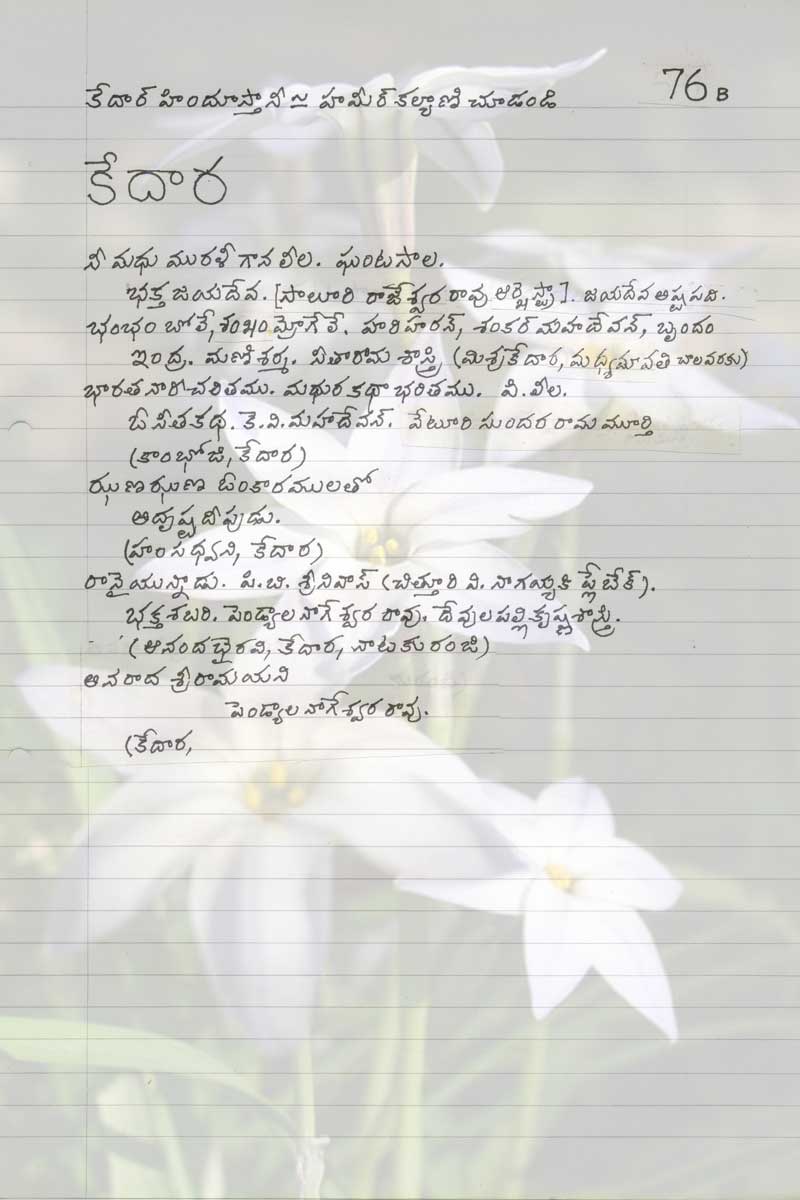 కేదార్ హిందూస్తానీ ≃ హమీర్ కల్యాణి చూడండి
76 B
కేదార
నీ మధు మురళీ గాన లీల. ఘంటసాల.
భక్త జయదేవ. [సాలూరి రాజేశ్వర రావు ఆర్కెస్ట్రా]. జయదేవ అష్టపది.
భంభం బోలే, శంఖం మ్రోగేలే. హరిహరన్, శంకర్ మహదేవన్, బృందం
ఇంద్ర. మణిశర్మ. సీతారామ శాస్త్రి (మిశ్రకేదార, మధ్యమావతి చాలవరకు)
భారతనారీ చరితము. మధుర కథా భరితము. పి. లీల.
ఓ సీతకథ. కె. వి. మహాదేవన్. వేటూరి సుందర రామ మూర్తి
(కాంభోజి, కేదార)
ఝణఝణ ఓంకారములతో
అదృష్టదీపుడు.
(హంసధ్వని, కేదార)
రానైయున్నాడు. పి. బి. శ్రీనివాస్ (చిత్తూరి వి. నాగయ్యకి ప్లేబేక్).
భక్త శబరి. పెండ్యాల నాగేశ్వర రావు. దేవులపల్లి కృష్ణశాస్త్రి.
(ఆనందభైరవి, కేదార, నాటకురంజి)
అనరాద శ్రీరామయని
పెండ్యాల నాగేశ్వర రావు.
(కేదార,